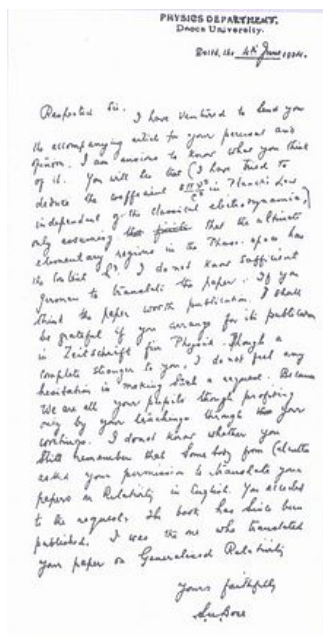 PHYSICS DEPARTMENT,
Dacca University.
Dated, the 4th June 1924.
Respected Sir, I have ventured to send you
the accompanying article for your perusal and
opinion. I am anxious to know what you think
of it. You will see that I have tried to
deduce the coefficient 8πν²/c³ in Planck's Law
independent of the classical electrodynamics,
only assuming that the ultimate
elementary regions in the Phase-space has
the content h³. I do not know sufficient
German to translate the paper. If you
think the paper worth publication, I shall
be grateful if you arrange for its publication
in Zeitschrift für Physik. Though a
complete stranger to you, I do not feel any
hesitation in making such a request. Because
we are all your pupils though profiting
only by your teachings through your
writings. I do not know whether you
still remember that somebody from Calcutta
asked your permission to translate your
papers on Relativity in English. You acceded
to the request. The book has since been
published. I was the one who translated
your paper on Generalised Relativity.
Yours faithfully
S. N. Bose